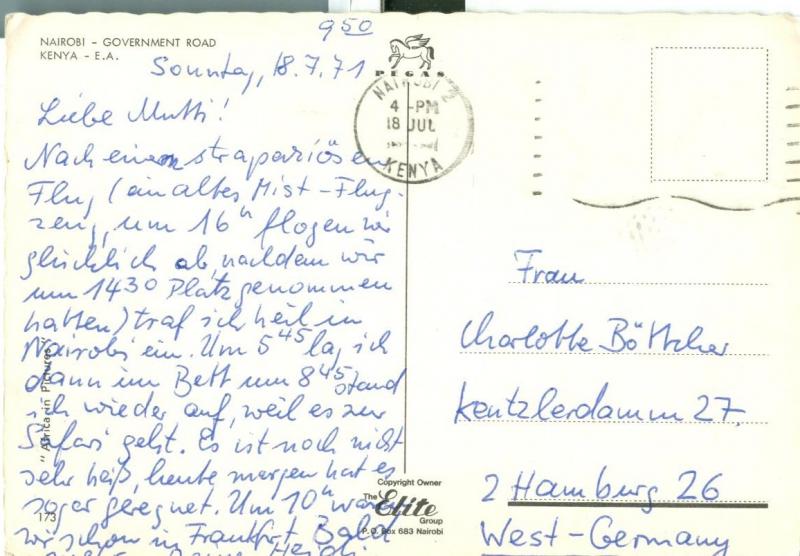 NAIROBI - GOVERNMENT ROAD
KENYA - E.A.
950
PEGAS
Sonntag, 18.7.71
NAIROBI
4 - PM
18 JUL
KENYA
Liebe Mutti!
Nach einem strapaziösen
Flug (ein altes Mist-Flug-
zeug, um 16 h flogen wir
glücklich ab, nachdem wir
um 1430 Platz genommen
hatten) traf ich heil in
Nairobi ein. Um 5 45 lag ich
dann im Bett um 8 45 stand
ich wieder auf, weil es zur
Safari geht. Es ist noch nicht
sehr heiß, heute morgen hat es
sogar geregnet. Um 10 h waren
wir schon in Frankfurt. Bald
Heidi
"Africa in Pictures"
173
Copyright Owner
The Elite
Group
P.O. Box 683 Nairobi
Frau
Charlotte Böttcher
Kentzlerdamm 27.
2 Hamburg 26
West-Germany